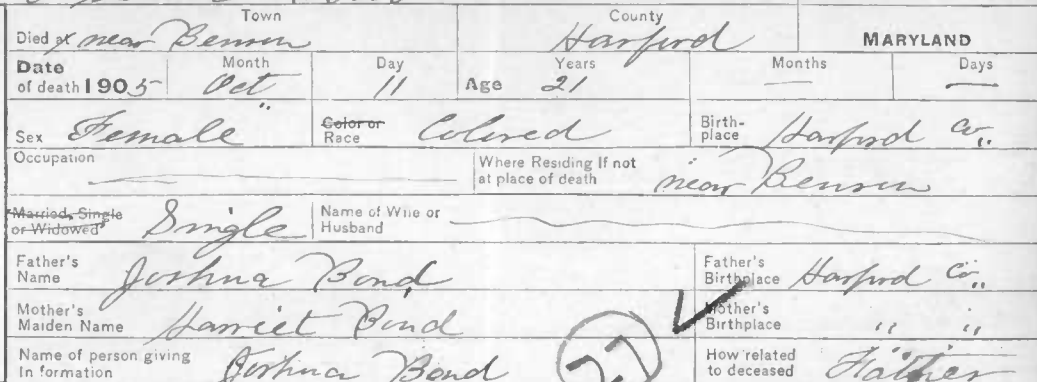 Town County
Died at near Benson Harford MARYLAND
Date Month Day Years Months Days
of death 1905 Oct 11 Age 21 — —
Sex Female Color or Race Colored Birth-place Harford Co.,
Occupation Where Residing If not at place of death near Benson
Married, Single or Widowed Single Name of Wife or Husband
Father's Name Joshua Bond Father's Birthplace Harford Co.,
Mother's Maiden Name Harriet Bond Mother's Birthplace " "
Name of person giving In formation Joshua Bond 27 How related to deceased Father